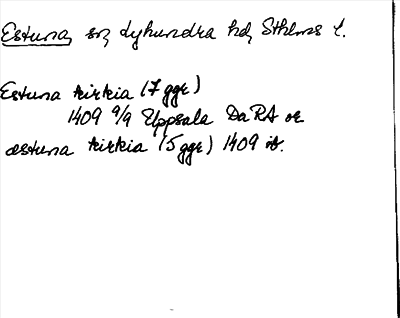 Estuna, sn, Lyhundra hd, Sthlms l.
Estuna kirkia (7 ggr)
1409 9/9 Uppsala DaRA or
æstuna kirkia (5 ggr) 1409 ib.